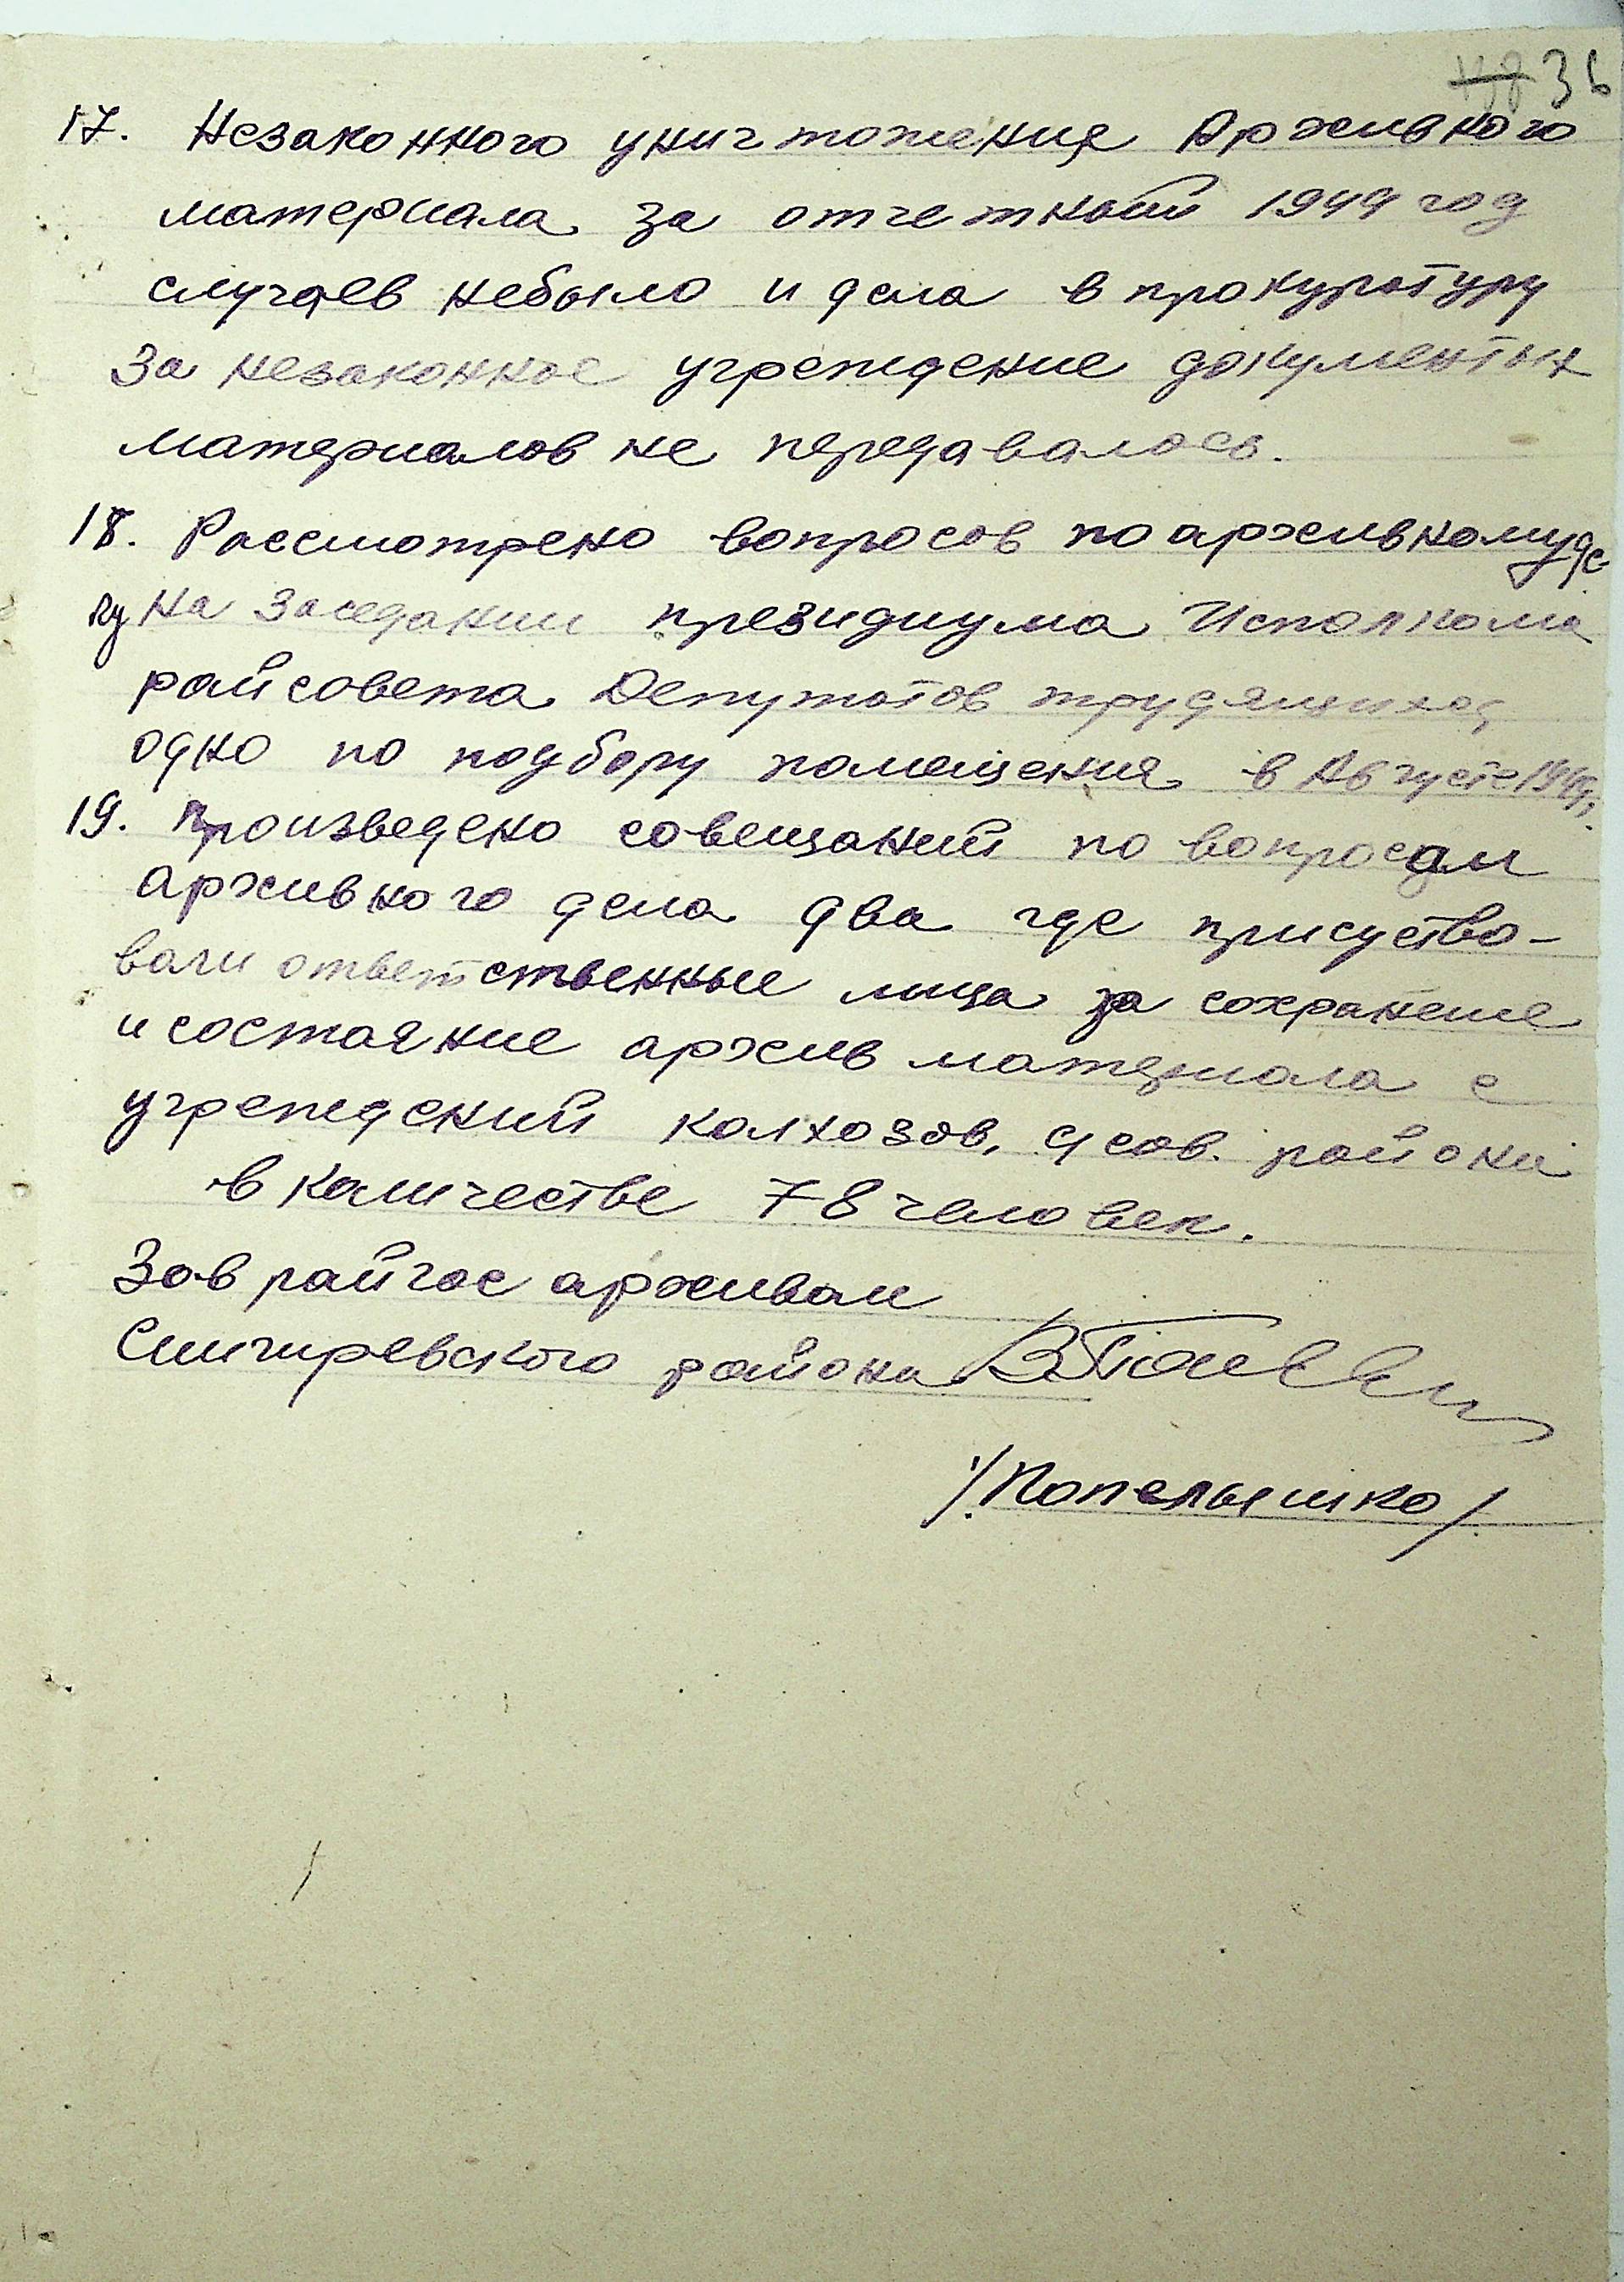 36
17. Незаконного уничтожения Архивного
материала за отчетный 1949 год
случаев небыло и дела в прокуратуру
за незаконное учреждение документых
материалов не передавалось.
18. Рассмотрено вопросов по архивному де-
лу на заседании президиума Исполкома
райсовета Депутатов трудящихся
одно по подбору помещения в Августе
19. Произведено совещаний по вопросам
архивного дела два где присуство-
вали ответственные лица за сохранение
и состояние архив материала с
учреждений колхозов, с/сов. района
в количестве 78 человек.
Зав райгос архивом
Снигиревского района
/Попельышко/